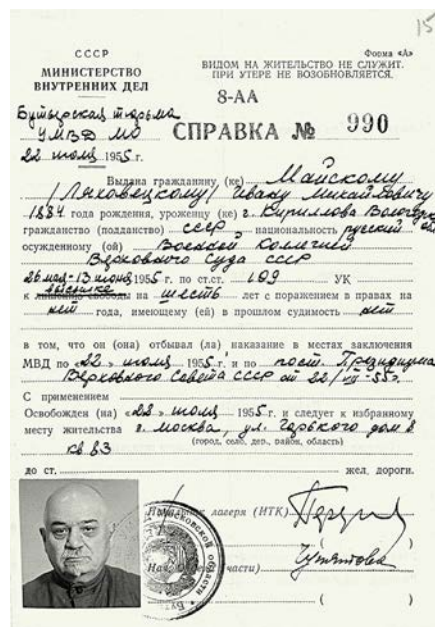 15
СССР
МИНИСТЕРСТВО
ВНУТРЕННИХ ДЕЛ
Форма «А»
ВИДОМ НА ЖИТЕЛЬСТВО НЕ СЛУЖИТ.
ПРИ УТЕРЕ НЕ ВОЗОБНОВЛЯЕТСЯ.
8-АА
Бутырская тюрьма
УМВД МО
СПРАВКА № 990
22 июля 1955 г.
Выдана гражданину (ке) Майскому
/Ляховецкому/ Ивану Михайловичу
1884 года рождения, уроженцу (ке) г. Кириллова Вологодск
гражданство (подданство) СССР национальность русский
осужденному (ой) Военной Коллегией
Верховного Суда СССР
26 мая-13 июня 1955 г. по ст.ст. 109 УК
высылке
к лишению свободы на шесть лет с поражением в правах на
нет года, имеющему (ей) в прошлом судимость нет
в том, что он (она) отбывал (ла) наказание в местах заключения
МВД по «22» июля 1955 г. и по пост. Президиума
Верховного Совета СССР от 22/VII-55г.
С применением
Освобожден (на) «22» июля 1955 г. и следует к избранному
месту жительства г. Москва, ул. Горького дом 8
(город, село, дер., район, область)
кв 83
до ст. жел. дороги.
Начальник лагеря (ИТК)
)
Нач. части)
)
( )
Московской области